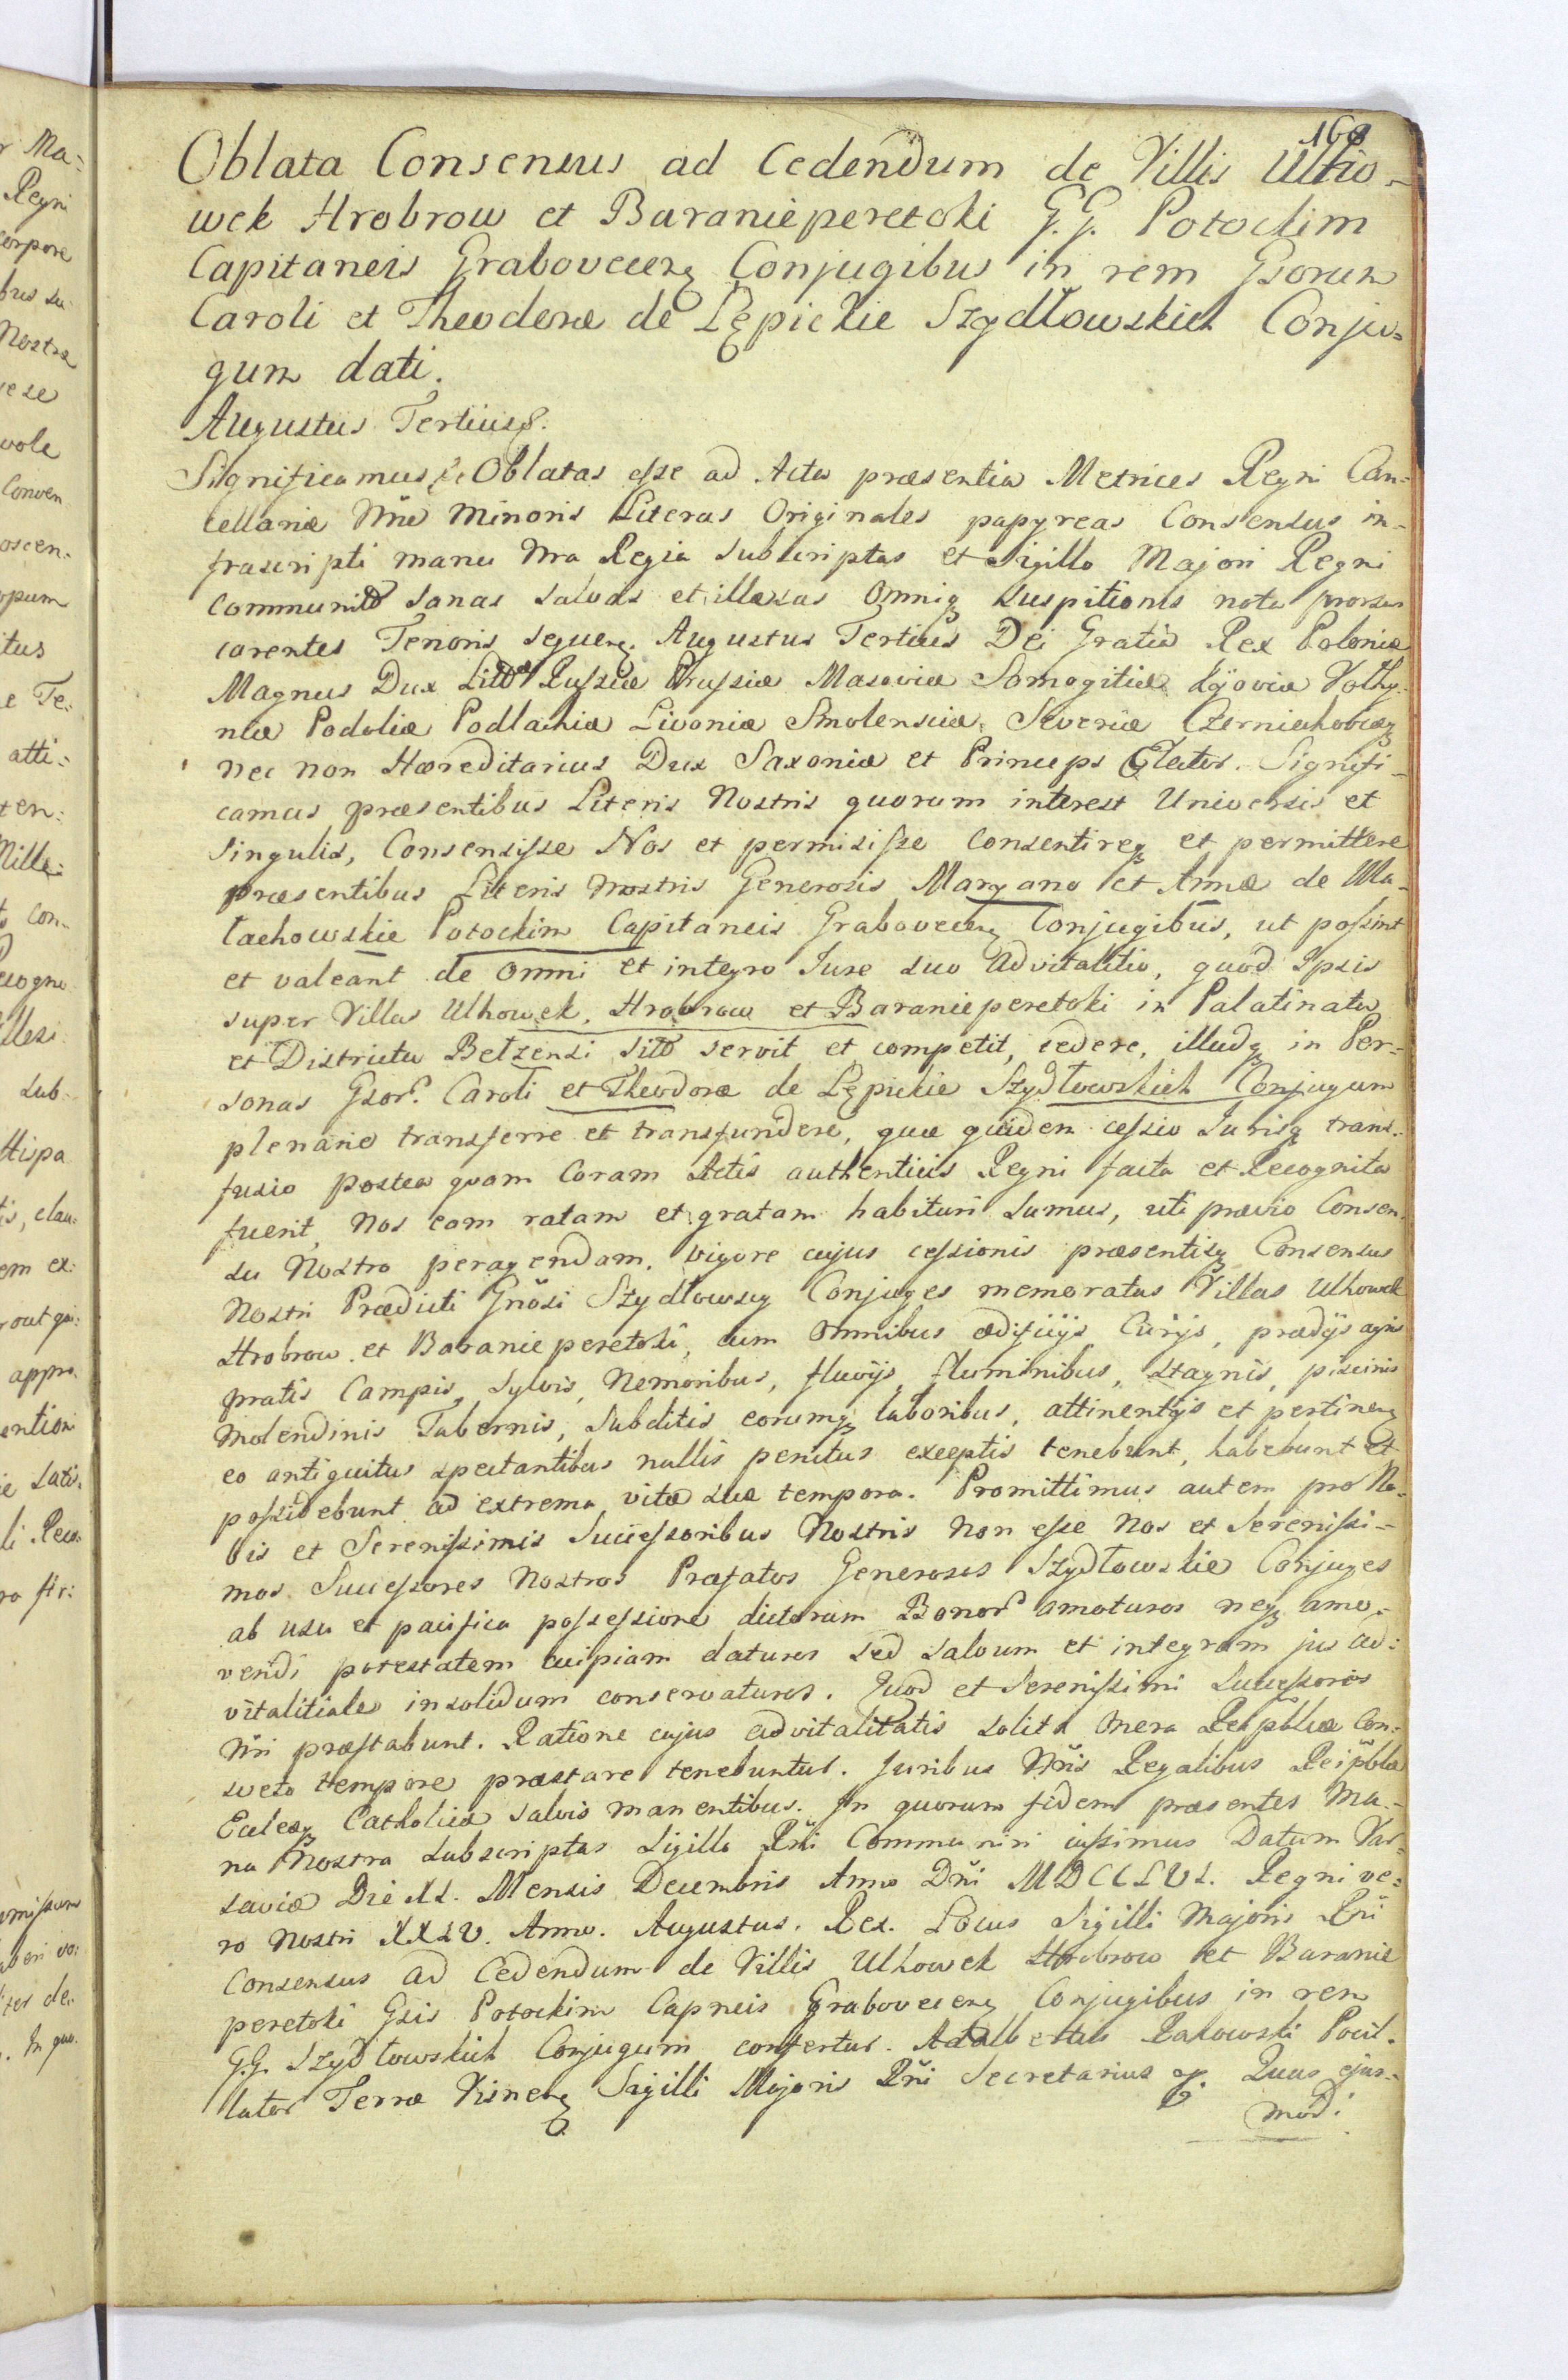 168
Oblata Consensus ad Cedendum de Villis Ulho-
wek Hrobrow et Baranieperetoki G.G. Potockim
Capitaneis Grabovecens Conjugibus in rem Gsorum
Caroli et Theodoræ de Lępickie Szydłowskich Conju-
gum dati.
Augustus Tertius
Significamus Oblatas esse ad Acta præsentia Metrices Regni Can-
cellariæ Nræ Minoris Literas Originales papyreas Consensus in-
frascripti manu Nra Regia subscriptas et Sigillo Majori Regni
communitas sanas salvas et illæsas omniq suspitionis nota prorsus
carentes Tenoris sequens. Augustus Tertius Dei Gratia Rex Poloniæ
Magnus Dux Litt Russiæ Prussiæ Masoviæ Samogitiæ Kijoviæ Volhy-
niæ Podoliæ Podlachiæ Livoniæ Smolensciæ Severiæ Czerniechoviæq
nec non Hæreditarius Dux Saxoniæ et Princeps Elector. Signifi-
camus præsentibus Literis Nostris quorum interest Universis et
Singulis, Consensisse Nos et permisisse consentireq et permittere
præsentibus Literis Nostris Generosis Maryano et Annæ de Ma-
łachowskie Potockim Capitaneis Grabovecens Conjugibus, ut possint
et valeant de omni et integro Jure suo advitalitio, quod Ipsis
super Villas Ulhowek, Hrobrow et Baranieperetoki in Palatinatu
et Districtu Belzensi sitas servit et competit, cedere, illudq in Per-
sonas Gsor. Caroli et Theodoræ de Lępickie Szydłowskich Conjugum
plenarie transferre et transfundere, quæ quidem cessio Jurisq trans-
fusio postea quam Coram Actis authenticis Regni facta et Recognita
fuerit, Nos eam ratam et gratam habituri sumus, uti prævio Consen-
su Nostro peragendam. vigore cujus cessionis præsentisq Consensus
Nostri Prædicti Gnosi Szydłowscy Conjuges memoratas Villas Ulhowek
Hrobrow et Baranieperetoki, cum omnibus ædificijs Curijs, prædijs agris
pratis Campis, Sylvis, Nemoribus, fluvijs, fluminibus, stagnis, piscinis
Molendinis Tabernis, Subditis eorumq laboribus, attinentijs et pertinens
eo antiquitus spectantibus nullis penitus exceptis tenebunt, habebunt et
possidebunt ad extrema vitæ suæ tempora. Promittimus autem pro No-
bis et Serenissimis Successoribus Nostris non esse Nos et Serenissi-
mos Successores Nostros Præfatos Generosos Szydłowskie Conjuges
ab usu et pacifica possessione dictorum Bonor amoturos neq amo-
vendi potestatem cuipiam daturos sed salvum et integrum jus ad-
vitalitiale insolidum conservaturos. Quod et Serenissimi Successores
Nri præstabunt. Ratione cujus advitalitatis solita onera Reipblicæ Con-
sueto tempore præstare tenebuntur. Juribus Nris Regalibus Reipblcæ
Ecclesq Catholicæ salvis manentibus. In quorum fidem præsentes Ma-
nu Nostra subscriptas Sigillo Rni Communiri iussimus Datum Var-
saviæ Die XI. Mensis Decembris Anno Dni MDCCLVI. Regni ve-
ro Nostri XXIV. Anno. Augustus. Rex. Locus Sigilli Majoris Rni
Consensus ad Cedendum de Villis Ulhowek Hrobrow et Baranie
peretoki Gsis Potockim Capneis Grabovecens Conjugibus in rem
G.G. Szydłowskich Conjugum confertur. Adalbertus Rakowski Pocil-
lator Terræ Visnens Sigilli Majoris Rni Secretarius Quas ejus-
modi